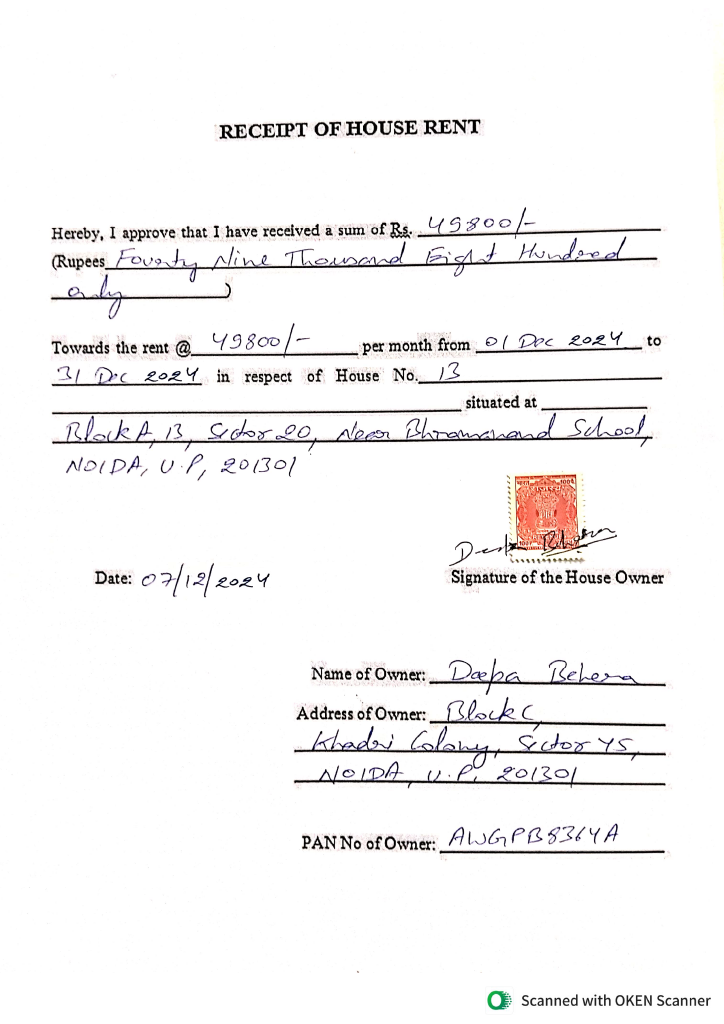 RECEIPT OF HOUSE RENT
Hereby, I approve that I have received a sum of Rs. 49800/-
(Rupees Fourty Nine Thousand Eight Hundred
only )
Towards the rent @ 49800/- per month from 01 Dec 2024 to
31 Dec 2024 in respect of House No. 13
situated at
Block A, 13, Sector 20, Near Bhramanand School,
NOIDA, U.P, 201301
Deepa Behera
Date: 07/12/2024
Signature of the House Owner
Name of Owner: Deepa Behera
Address of Owner: Block C,
Khadri Colony, Sector 45,
NOIDA, U.P, 201301
PAN No of Owner: AWGPB8364A
Scanned with OKEN Scanner